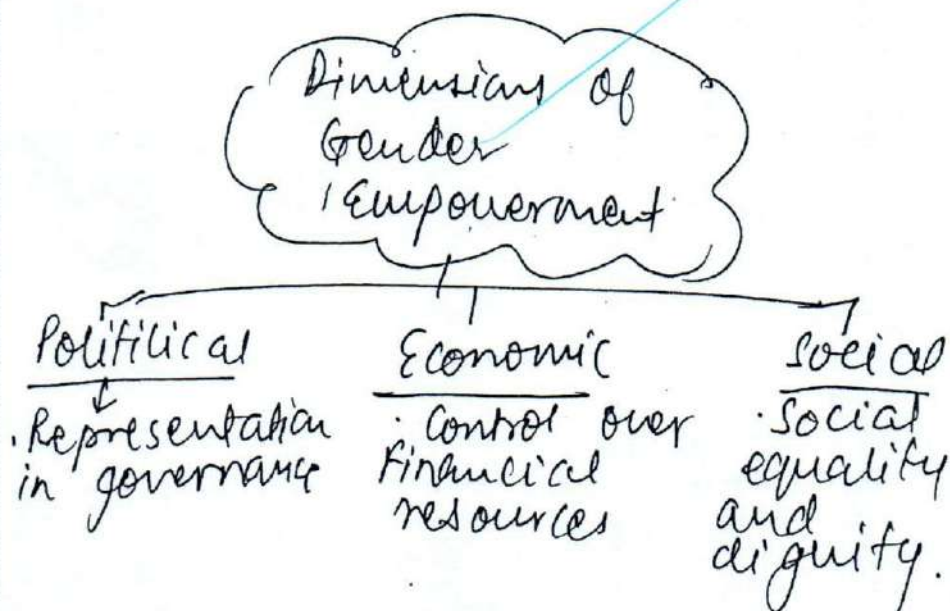 Dimensions of
Gender
Empowerment
Politilical
· Representation
in governance
Economic
· Control over
Financial
resources
Social
· Social
equality
and
dignity.